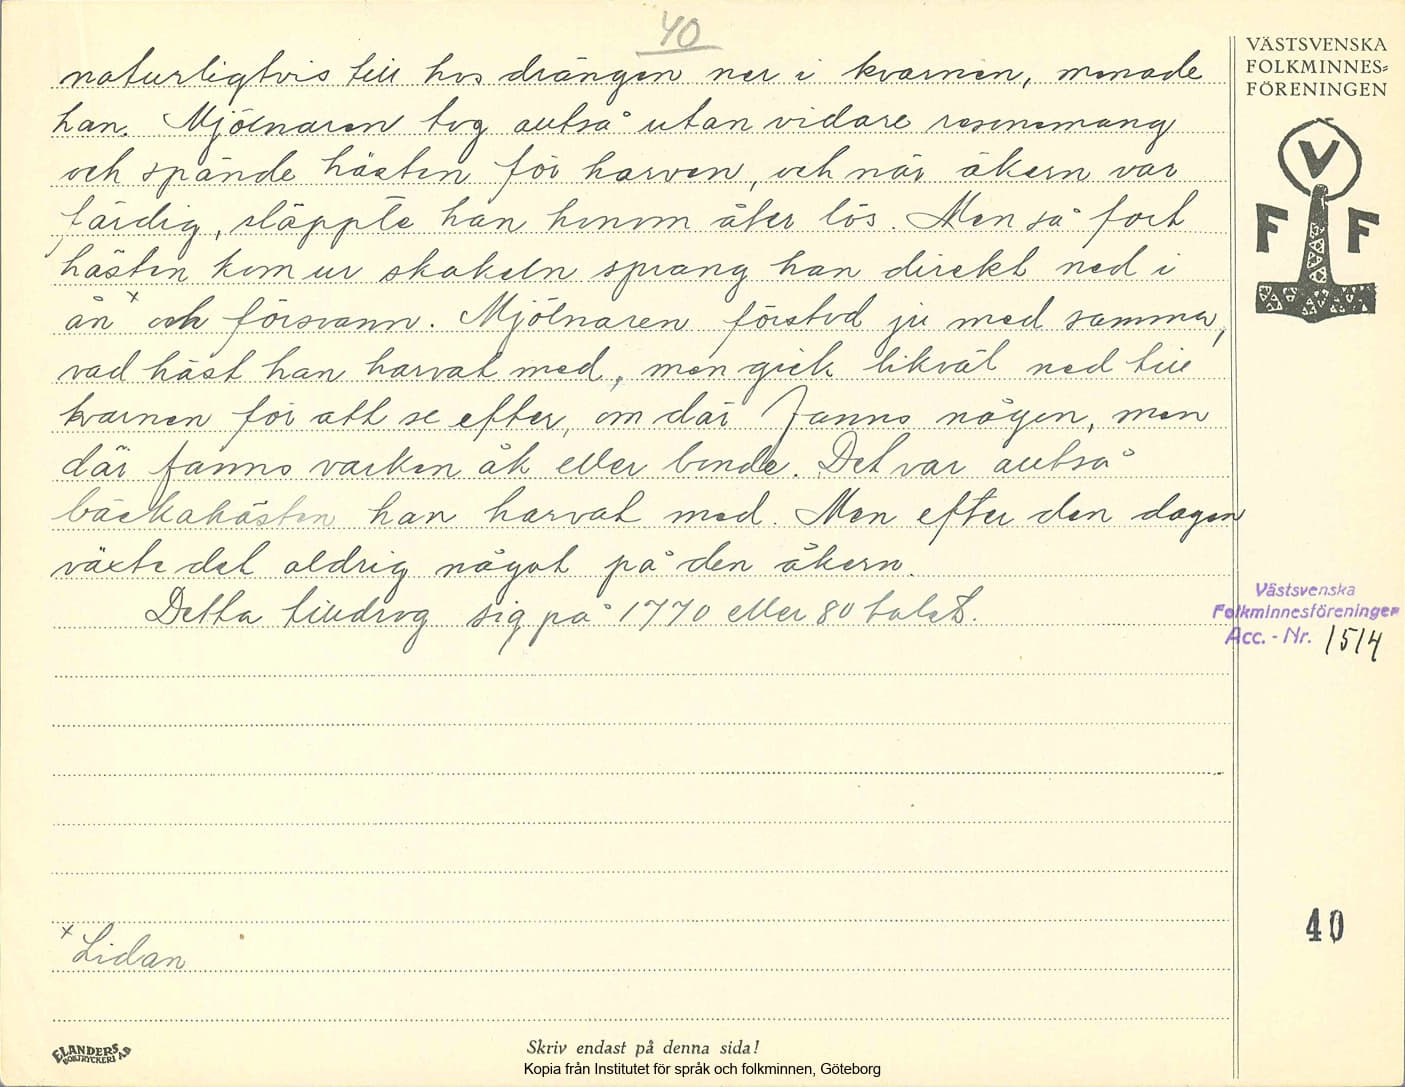 40
naturligtvis till hos drängen ner i kvarnen, menade
han. Mjölnaren tog alltså utan vidare resonemang
och spände hästen för harven, och när åkern var
färdig, släppte han honom åter lös. Men så fort
hästen kom ur skakeln sprang han direkt ned i
ån x och försvann. Mjölnaren förstod ju med samma,
vad häst han harvat med, men gick likväl ned till
kvarnen för att se efter, om där fanns någon, men
där fanns varken åk eller bonde. Det var alltså
bäckahästen han harvat med. Men efter den dagen
växte det aldrig något på den åkern.
Detta tilldrog sig på 1770 eller 80 talet.
x Lidan
VÄSTSVENSKA
FOLKMINNES=
FÖRENINGEN
V
F F
Västsvenska
Folkminnesföreningen
Acc. - Nr. 1514
40
ELANDERS
BOKTRYCKERI AB
Skriv endast på denna sida!
Kopia från Institutet för språk och folkminnen, Göteborg